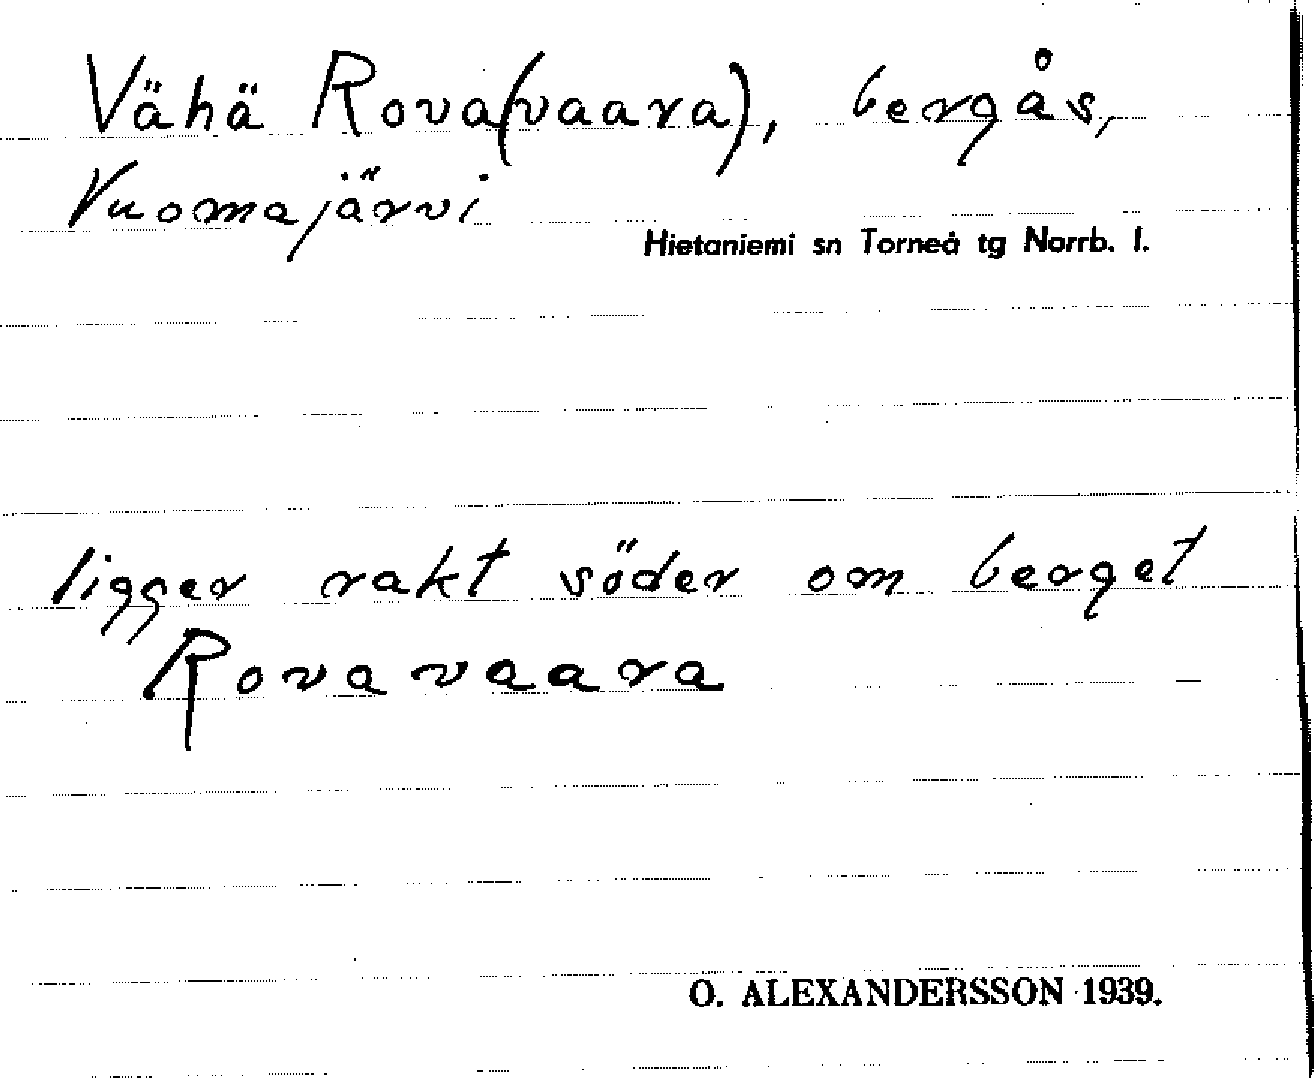 Vähä Rova(vaara), bergås,
Vuomajärvi
Hietaniemi sn Torneå tg Norrb. l.
ligger rakt söder om berget
Rovavaara
O. ALEXANDERSSON 1939.